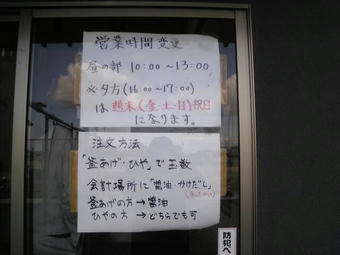 営業時間変更
昼の部 10:00〜13:00
夕方(16:00〜17:00)
は週末(金・土・日)祝日
になります。
注文方法
「釜あげ・ひや」で玉数
会計場所に「醤油・かけだし」
釜あげの方→醤油
ひやの方→どちらでも可
防犯へ